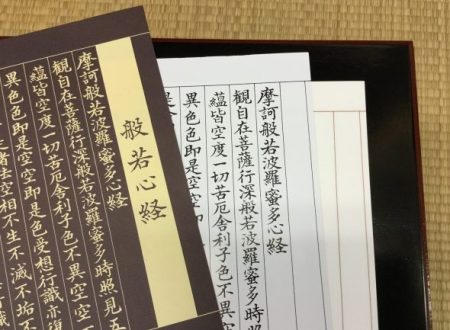 般若心経
摩訶般若波羅蜜多心経
観自在菩薩行深般若波羅蜜多時照見五
蘊皆空度一切苦厄舎利子色不異空空
異色色即是空空即是色受想行識亦復
空相不生不滅不垢不
摩訶般若波羅蜜多心経
観自在菩薩行深般若波羅蜜多
蘊皆空度一切苦厄舎利子色不異
異色色即是空空
是